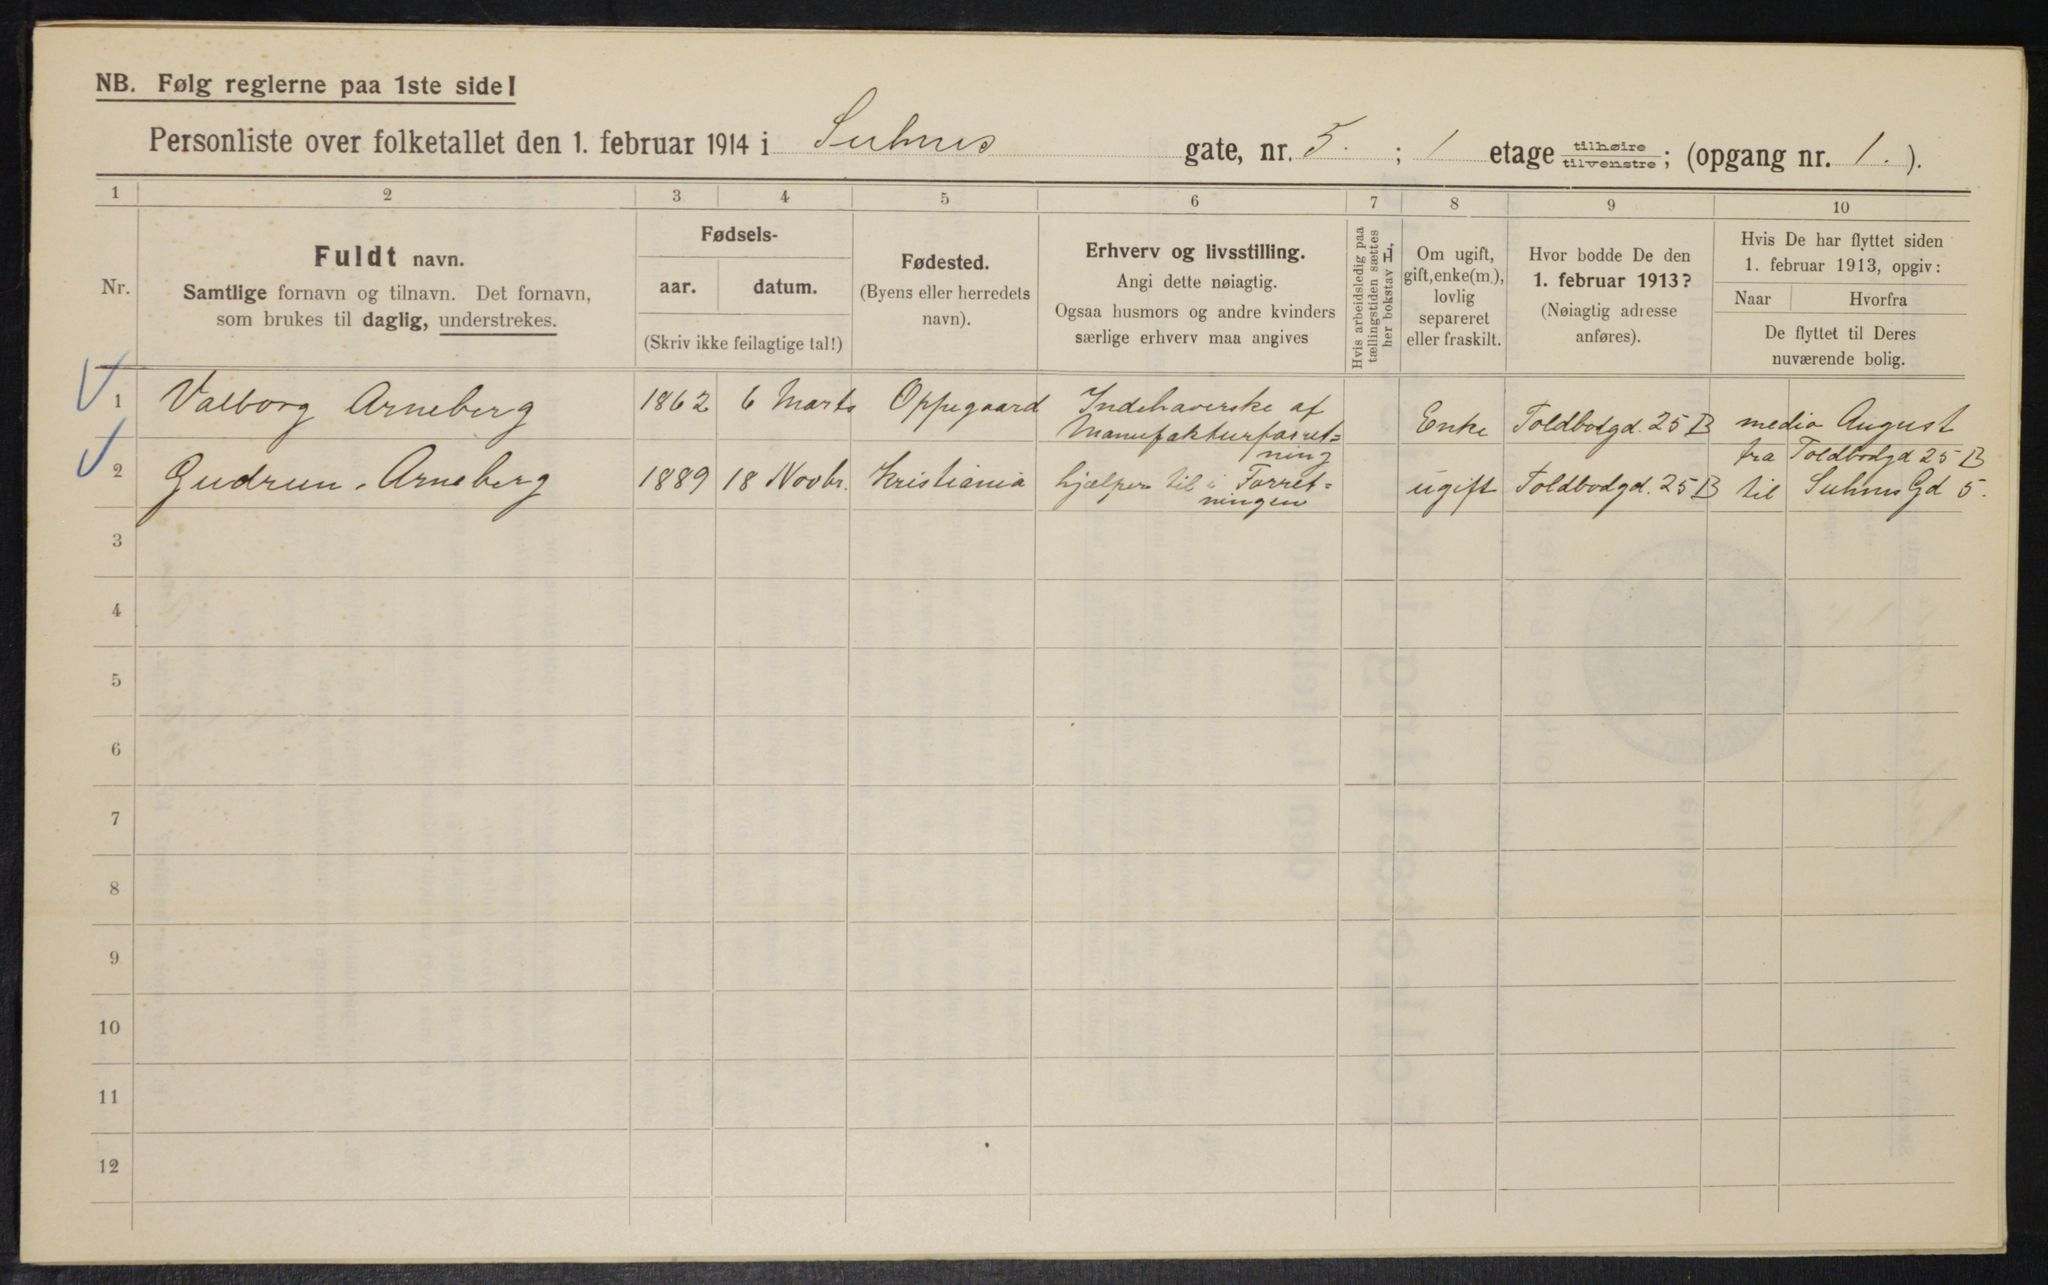 NB. Følg reglerne paa 1ste side!
Personliste over folketallet den 1. februar 1914 i Suhms gate, nr. 5. ; 1 etage tilhøire/tilvenstre; (opgang nr. 1. ).
1 2 3 4 5 6 7 8 9 10
Nr.
Fuldt navn.
Samtlige fornavn og tilnavn. Det fornavn,
som brukes til daglig, understrekes.
Fødsels-
aar. datum.
(Skriv ikke feilagtige tal!)
Fødested.
(Byens eller herredets
navn).
Erhverv og livsstilling.
Angi dette nøiagtig.
Ogsaa husmors og andre kvinders
særlige erhverv maa angives
Hvis arbeidsledig paa
tællingstiden sættes
her bokstav L.
Om ugift,
gift, enke(m.),
lovlig
separeret
eller fraskilt.
Hvor bodde De den
1. februar 1913?
(Nøiagtig adresse
anføres).
Hvis De har flyttet siden
1. februar 1913, opgiv:
Naar Hvorfra
De flyttet til Deres
nuværende bolig.
1 Valborg Arneberg 1862 6 Marts Oppegaard Indehaverske af
Manufakturforret-
ning
Enke Toldbodgd. 25 B medio August
fra Toldbodgd 25 B
2 Gudrun Arneberg 1889 18 Novbr. Kristiania hjælper til i Forret-
ningen
ugift Toldbodgd. 25 B til Suhms Gd 5.
3
4
5
6
7
8
9
10
11
12